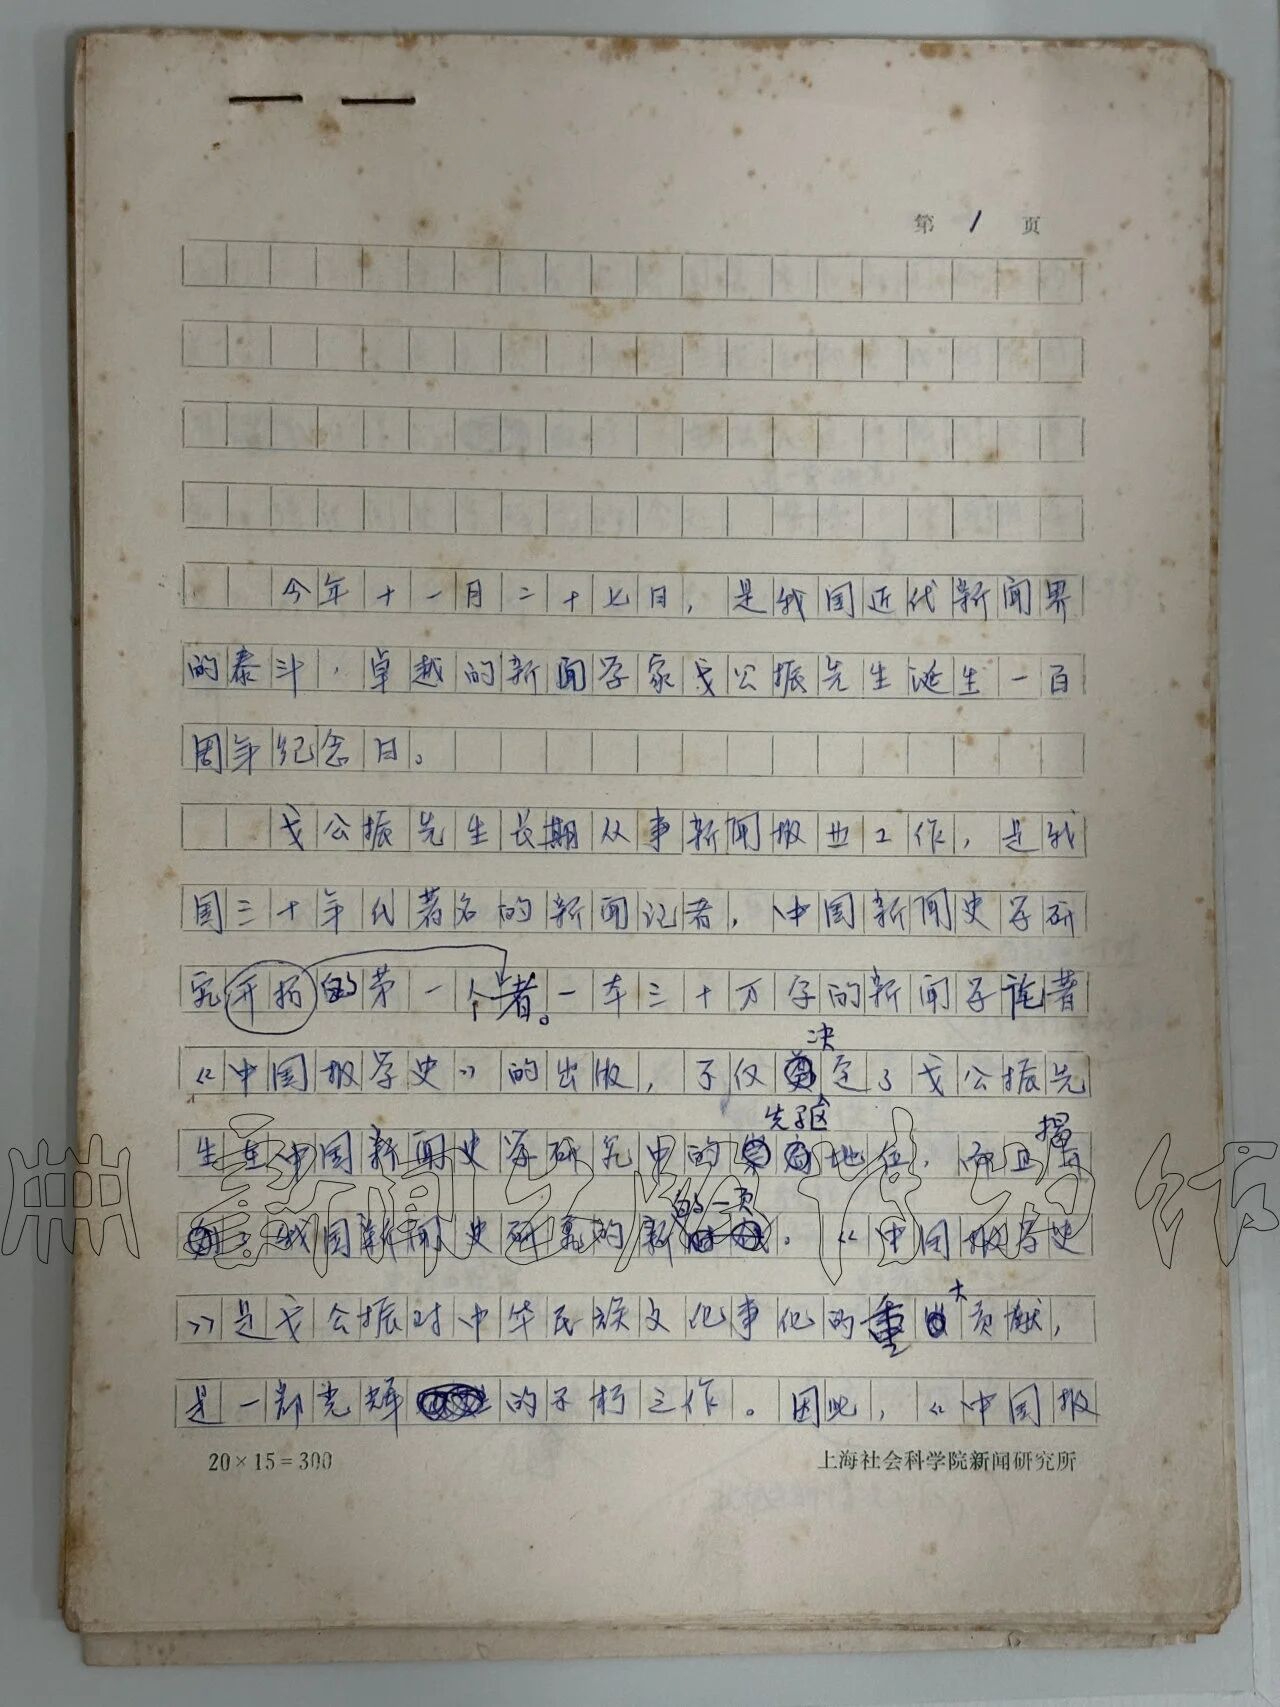 第 1 页
今年十一月二十七日，是我国近代新闻界
的泰斗，卓越的新闻学家戈公振先生诞生一百
周年纪念日。
戈公振先生长期从事新闻报业工作，是我
国三十年代著名的新闻记者，中国新闻史学研
究开拓的第一个者。一本三十万字的新闻学论著
决
《中国报学史》的出版，不仅定了戈公振先
先驱
揭
生在中国新闻史学研究中的地位，而且
的一页
我国新闻史研究的新。《中国报学史
大
》是戈公振对中华民族文化事化的重贡献，
是一部光辉的不朽之作。因此，《中国报
20×15=300
上海社会科学院新闻研究所